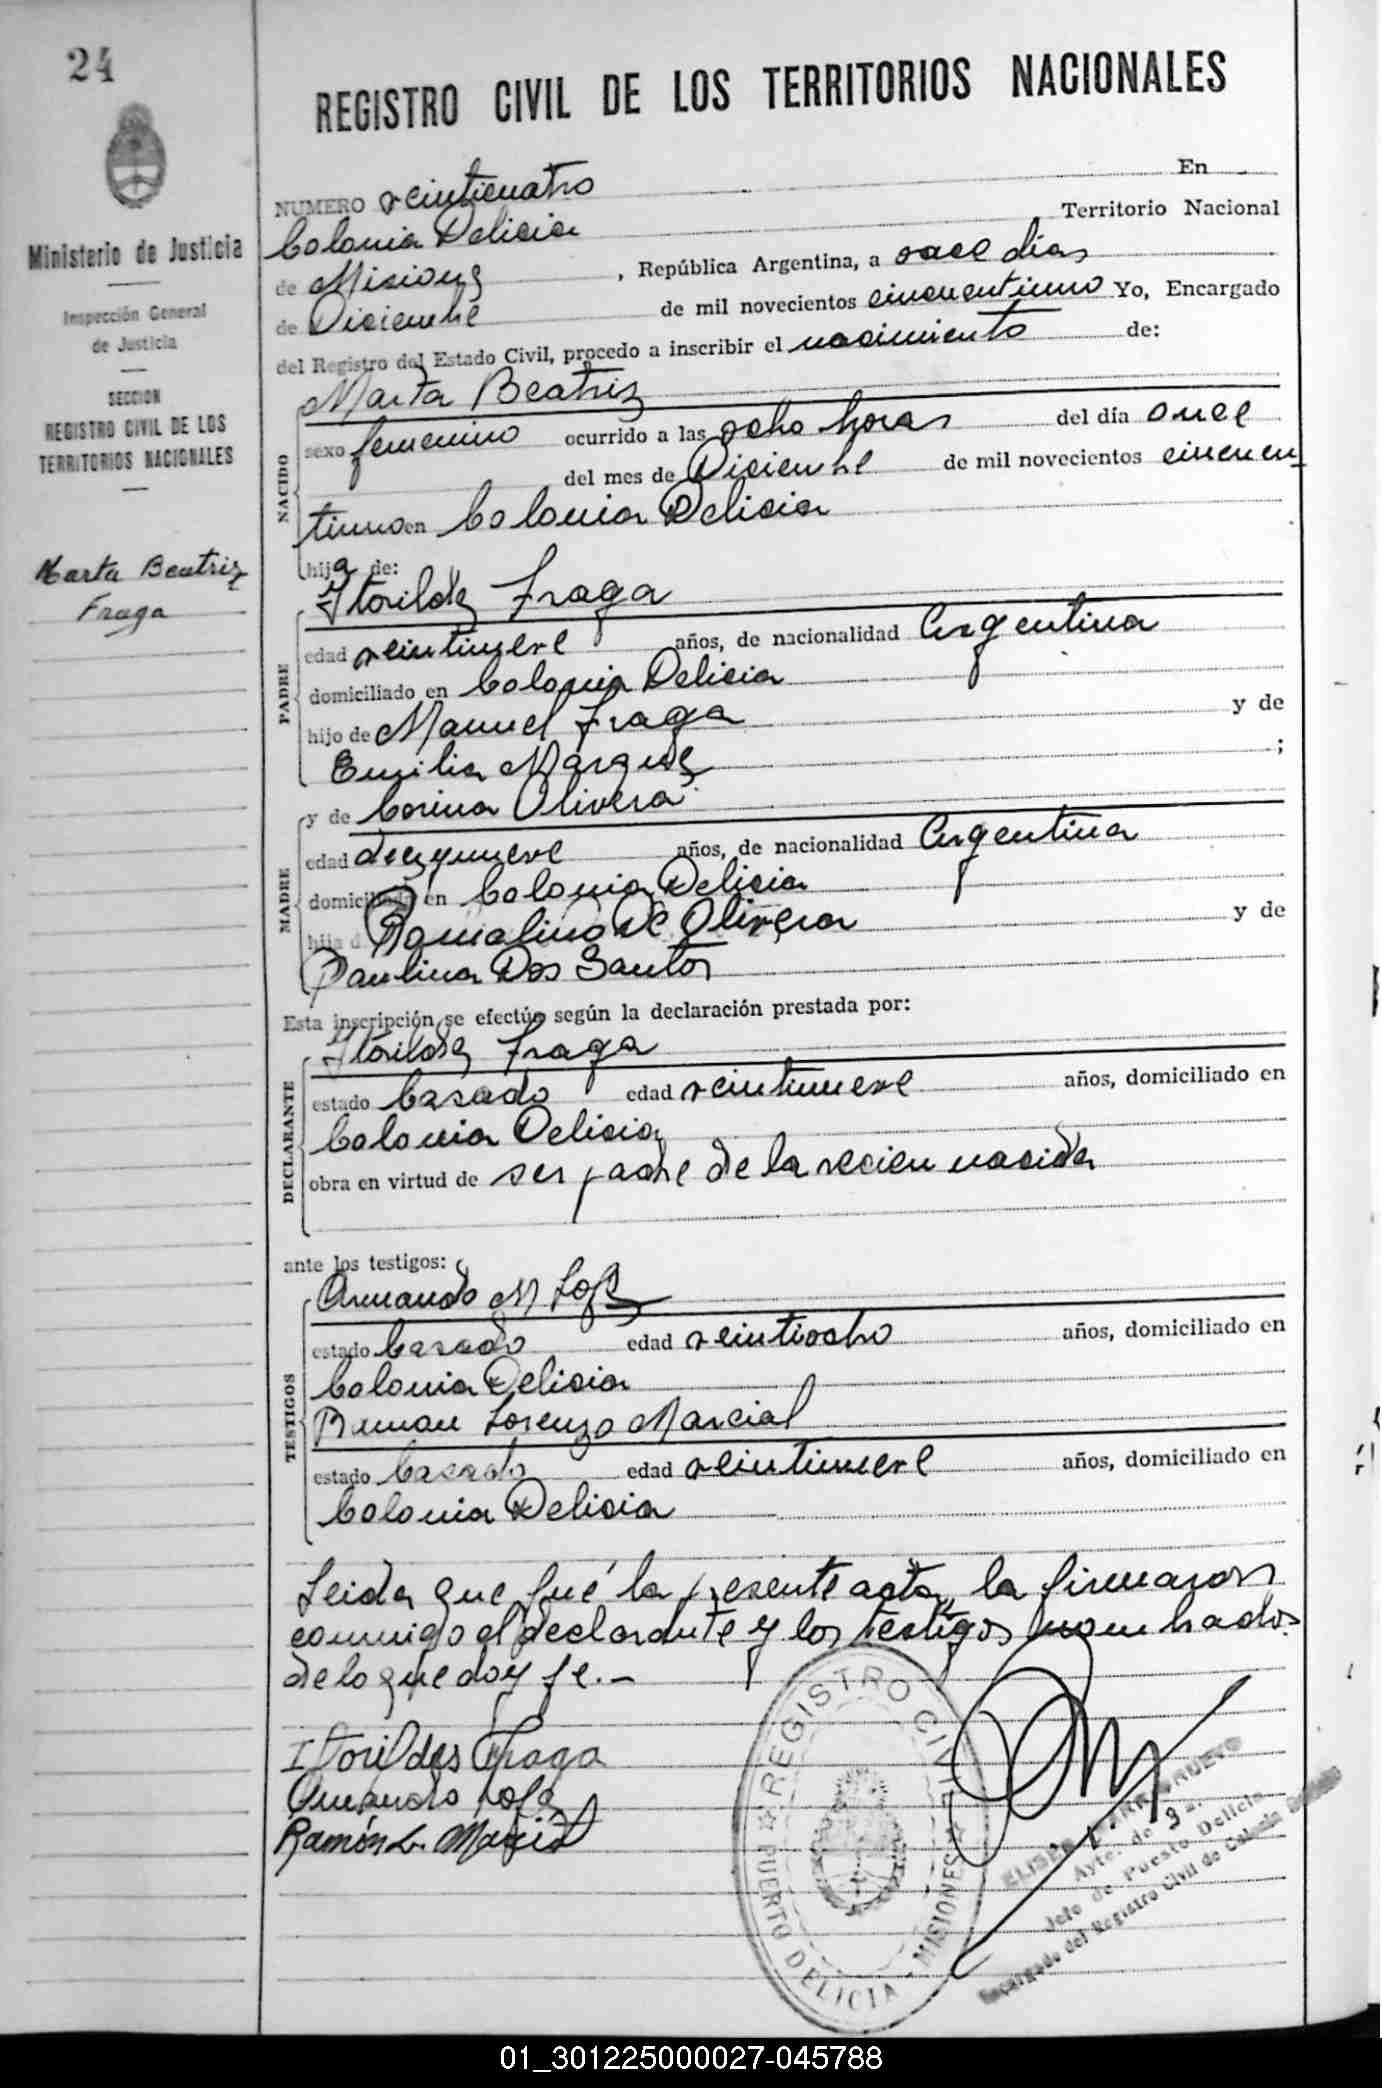 24
REGISTRO CIVIL DE LOS TERRITORIOS NACIONALES
Ministerio de Justicia
Inspección General
de Justicia
SECCION
REGISTRO CIVIL DE LOS
TERRITORIOS NACIONALES
Marta Beatriz
Fraga
NUMERO veinticuatro En
Colonia Delicia Territorio Nacional
de Misiones, República Argentina, a once días
de Diciembre de mil novecientos cincuentiuno Yo, Encargado
del Registro del Estado Civil, procedo a inscribir el nacimiento de:
NACIDO
Marta Beatriz
sexo femenino ocurrido a las ocho horas del día once
del mes de Diciembre de mil novecientos cincuen
tiuno en Colonia Delicia
hija de:
PADRE
Itorildes Fraga
edad veintinueve años, de nacionalidad Argentina
domiciliado en Colonia Delicia
hijo de Manuel Fraga y de
Emilia Marques ;
MADRE
y de Corina Olivera
edad diezynueve años, de nacionalidad Argentina
domiciliada en Colonia Delicia
hija d Romalino De Olivera y de
Paulina Dos Santos
Esta inscripción se efectúa según la declaración prestada por:
DECLARANTE
Itorildes Fraga
estado Casado edad veintinueve años, domiciliado en
Colonia Delicia
obra en virtud de ser padre de la recien nacida
ante los testigos:
TESTIGOS
Armando M
estado Casado edad veintiocho años, domiciliado en
Colonia Delicia
Ramon Lorenzo Marcial
estado Casado edad veintinueve años, domiciliado en
Colonia Delicia
Leida que fué la presente acta, la firmaron
conmigo el declarante y los testigos nombrados
de lo que doy fe.-
Itorildes Fraga
Armando
Ramón L.
REGISTRO CIVIL
PUERTO DELICIA - MISIONES
Ayte. de 3a.
Jefe de Puesto Delicia
Encargado del Registro Civil de Colonia Delicia
01_301225000027-045788